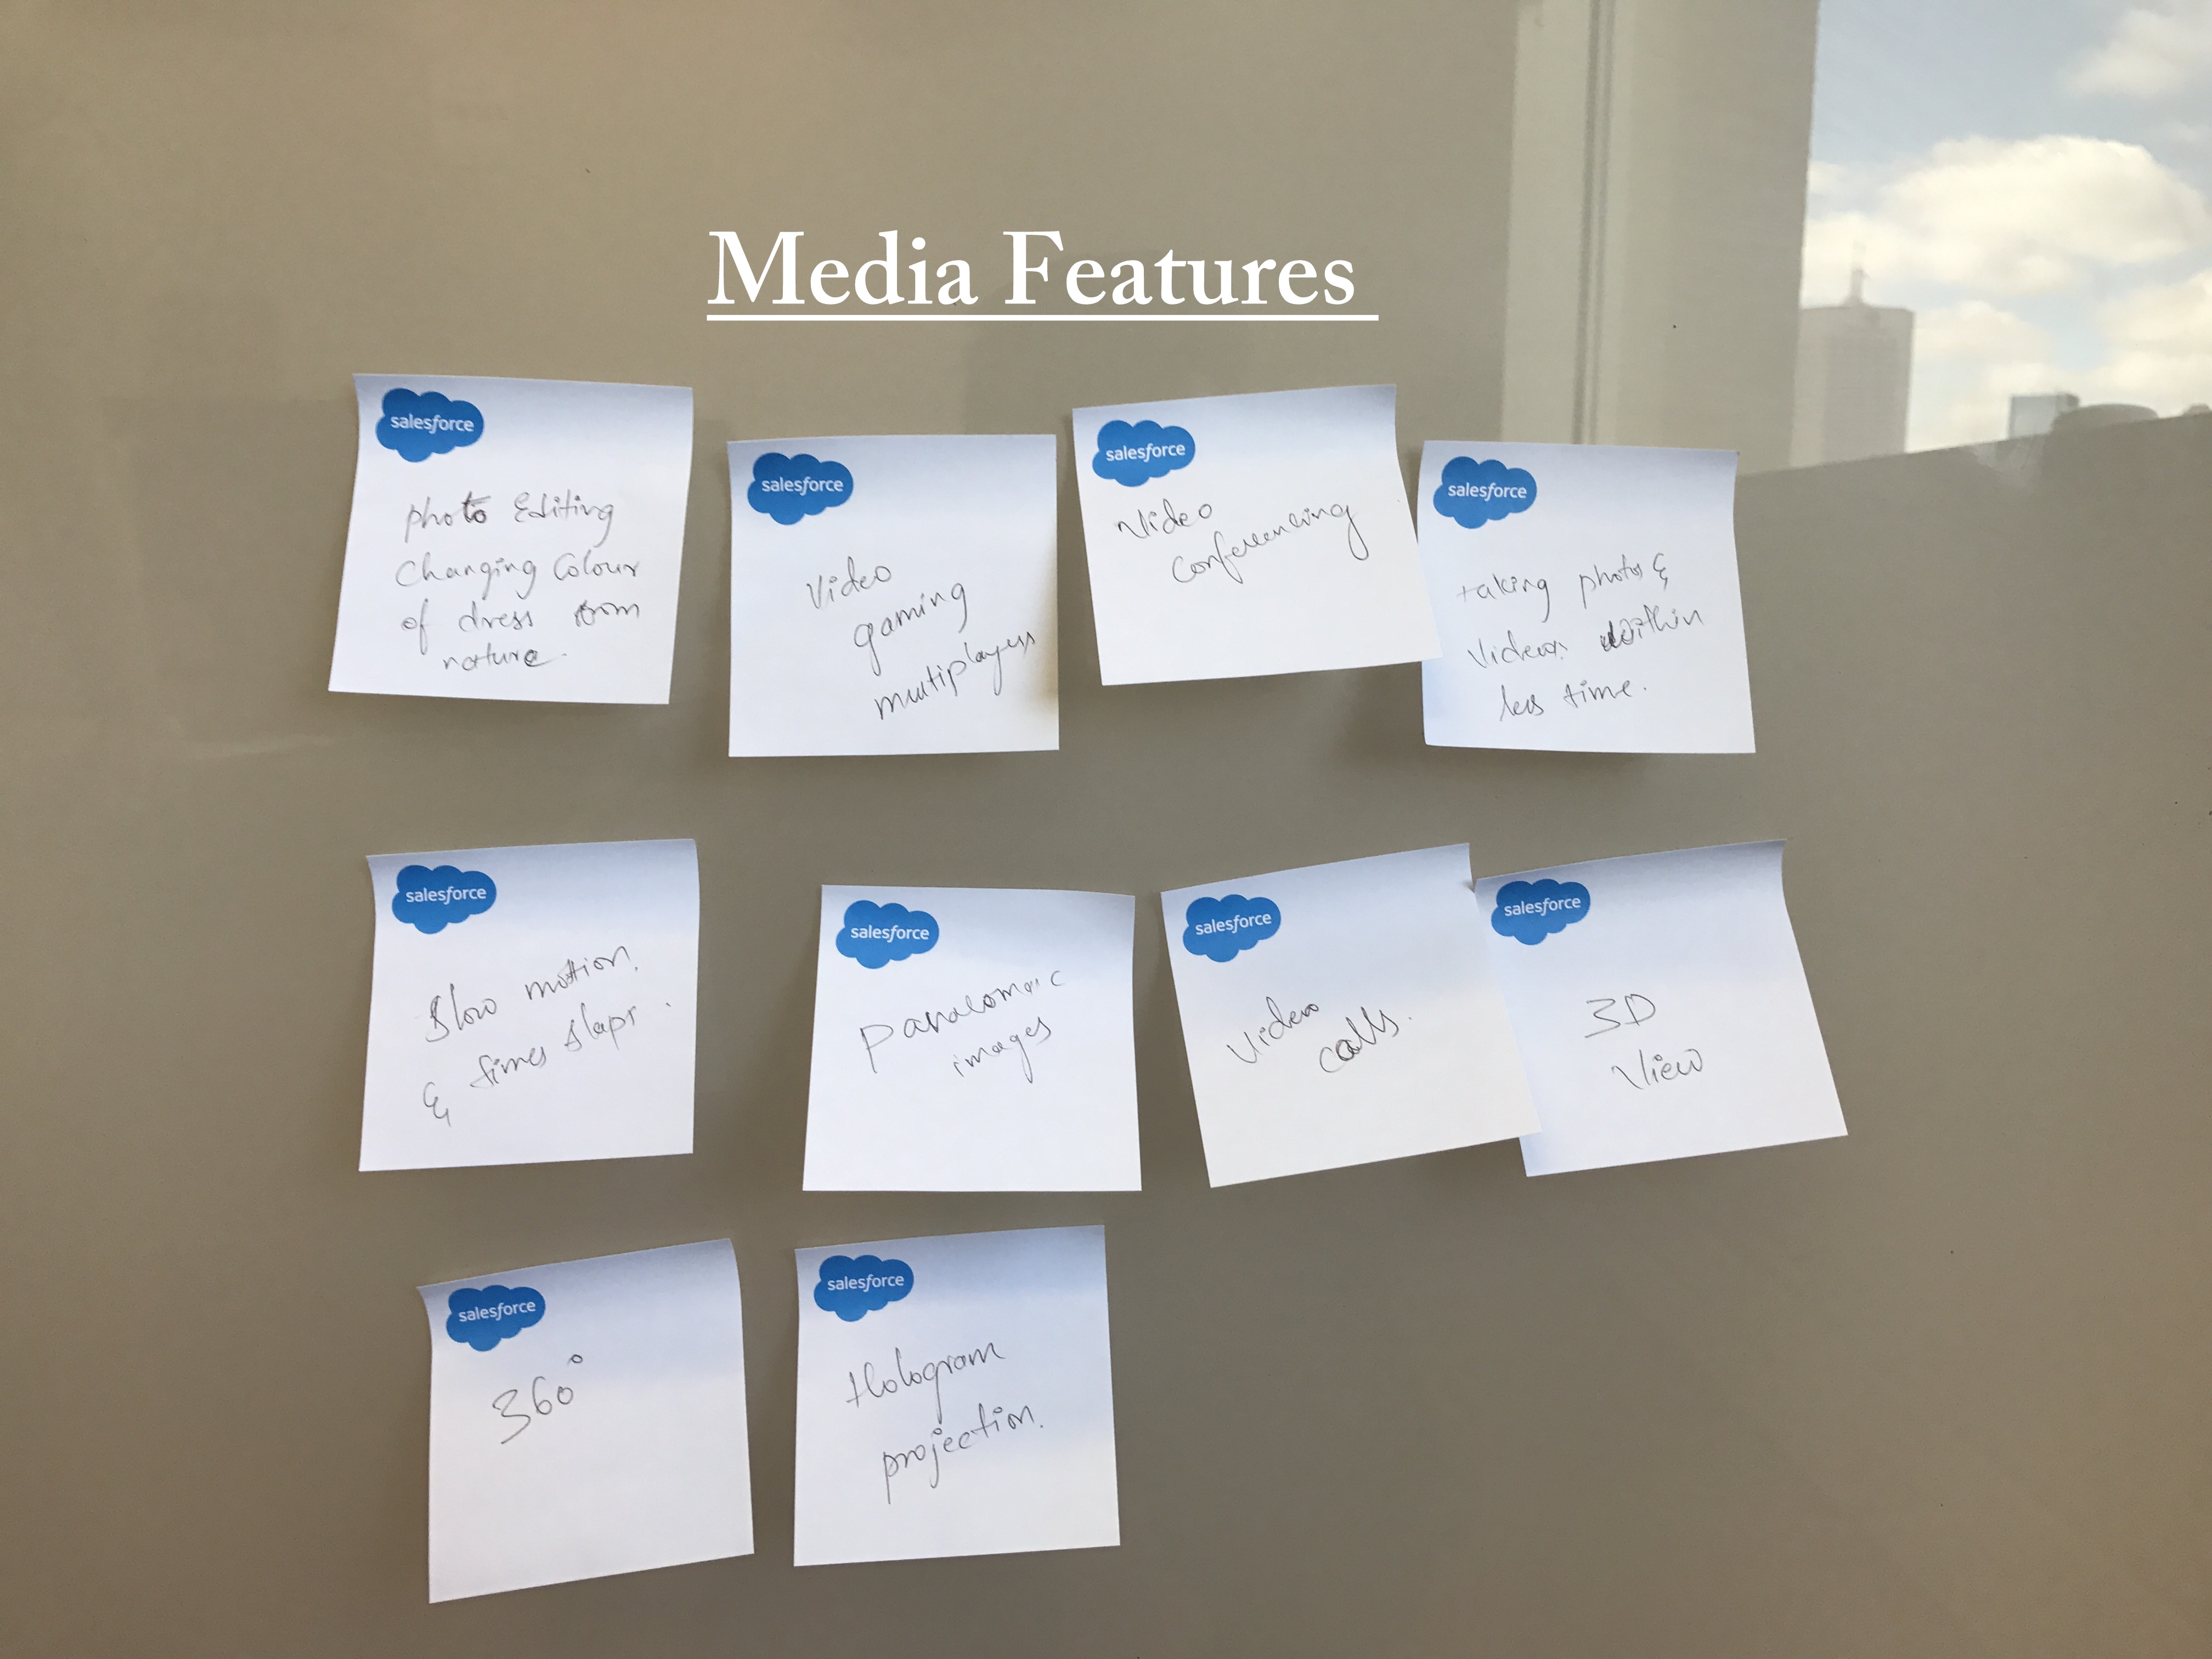 Media Features
salesforce
photo Editing
Changing Colour
of dress from
nature.
salesforce
Video
gaming
multiplayers
salesforce
Video
conferencing
salesforce
taking photos &
Videos within
less time.
salesforce
Slow motion.
& times slaps.
salesforce
Panaromaic
images
salesforce
Video
calls.
salesforce
3D
View
salesforce
360°
salesforce
Hologram
projection.